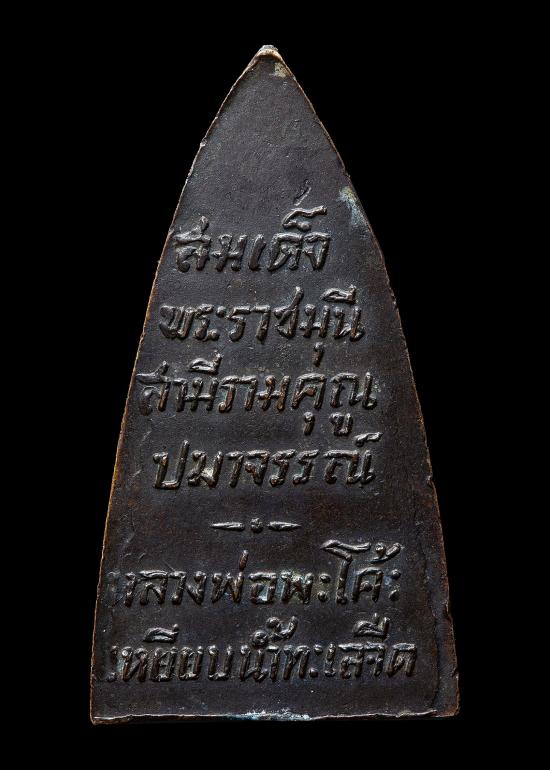 สมเด็จ
พระราชมุนี
สามีรามคุณู
ปมาจรรณ์
หลวงพ่อพะโค้ะ
เหยียบน้ำทะเลจืด